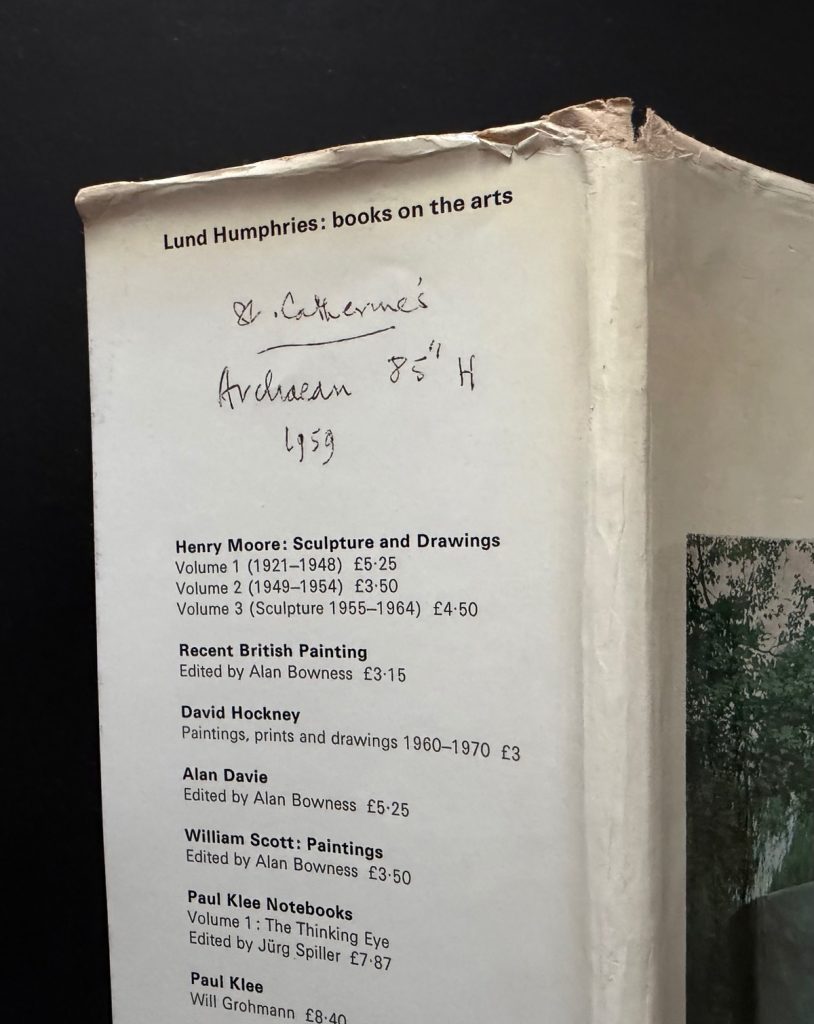 Lund Humphries: books on the arts
St. Catherine's
Archaean 85" H
1959
Henry Moore: Sculpture and Drawings
Volume 1 (1921–1948) £5·25
Volume 2 (1949–1954) £3·50
Volume 3 (Sculpture 1955–1964) £4·50
Recent British Painting
Edited by Alan Bowness £3·15
David Hockney
Paintings, prints and drawings 1960–1970 £3
Alan Davie
Edited by Alan Bowness £5·25
William Scott: Paintings
Edited by Alan Bowness £3·50
Paul Klee Notebooks
Volume 1: The Thinking Eye
Edited by Jürg Spiller £7·87
Paul Klee
Will Grohmann £8·40